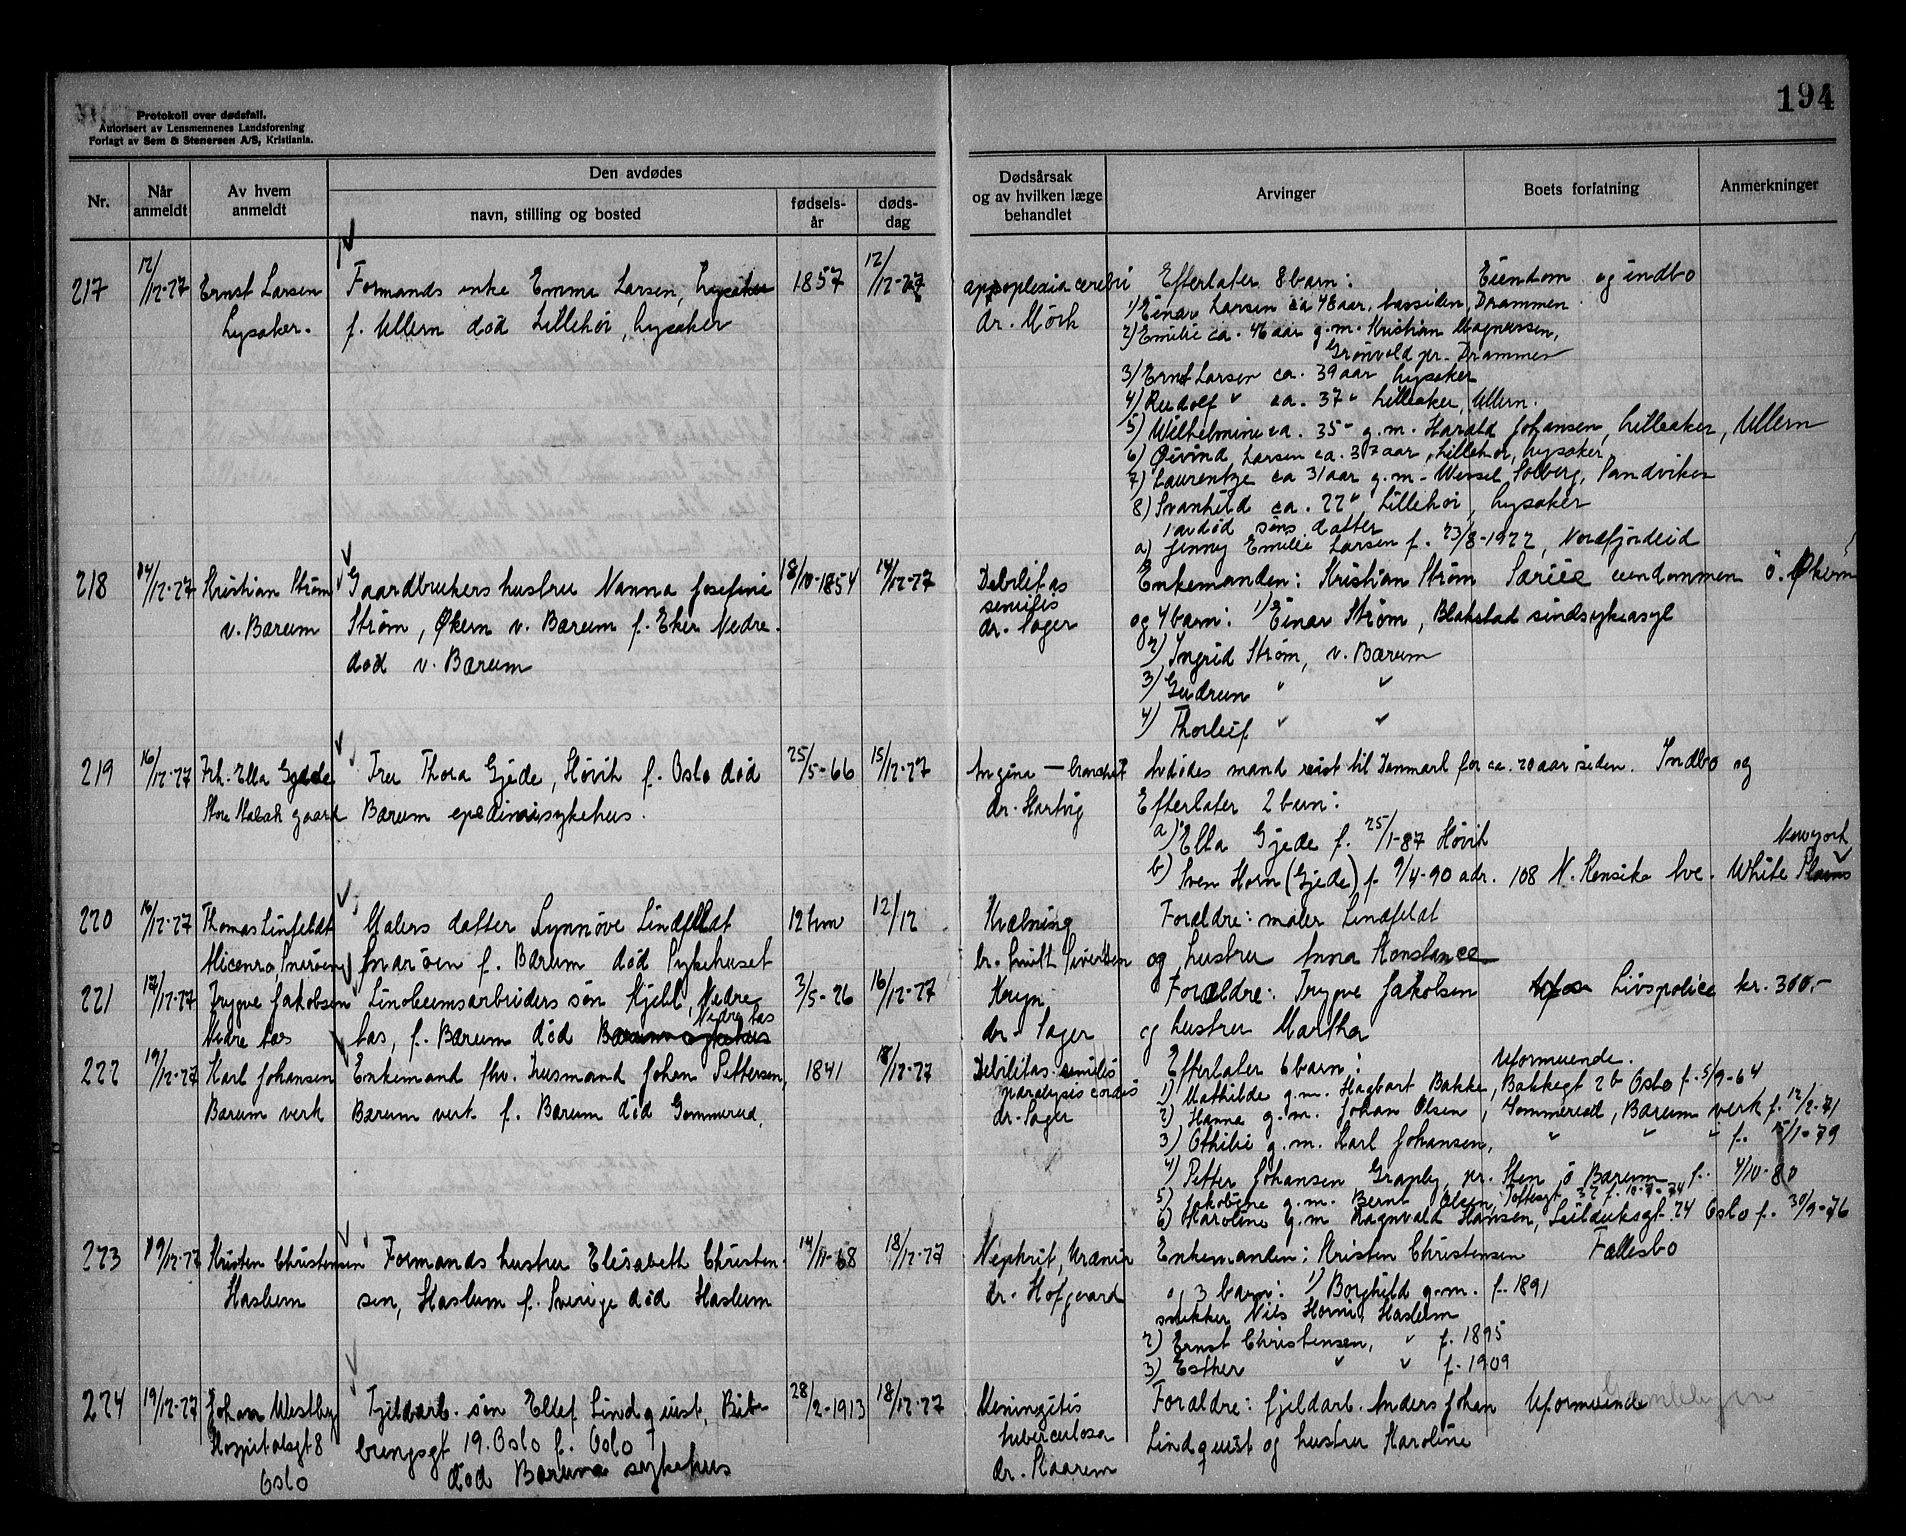 194
Protokoll over dødsfall.
Autorisert av Lensmennenes Landsforening
Forlagt av Sem & Stenersen A/S, Kristiania.
Nr.
Når anmeldt
Av hvem anmeldt
Den avdødes
navn, stilling og bosted
fødsels-
år
døds-
dag
Dødsårsak
og av hvilken læge
behandlet
Arvinger
Boets forfatning
Anmerkninger
217 12/12-27 Ernst Larsen Formands enke Emma Larsen, Lysaker 1857 12/12-27 appoplexia cerebri Efterlater 8 barn: Eiendom og indbo
Lysaker. f. Ullern død Lillehøi, Lysaker dr. Mørk
1) Einar Larsen ca 48 aar, Drammen
2) Emilie ca. 46 aar g.m. Kristian Magnussen,
Grønvold pr. Drammen
3) Ernst Larsen ca. 39 aar Lysaker
4) Rudolf " ca. 37 " Lilleaker, Ullern.
5) Wilhelmine ca. 35 " g.m. Harald Johansen, Lilleaker, Ullern
6) Øivind Larsen ca. 32 aar, Lillehøi, Lysaker
7) Laurentze ca 31 aar g.m. Wessel Solberg, Sandviken
8) Svanhild ca. 22 " Lillehøi, Lysaker
1 avdød søns datter
a) Jenny Emilie Larsen f. 23/8-1922, Nordfjordeid
218 14/12-27 Kristian Strøm Gaardbrukers hustru Nanna Josefine 18/10-1854 14/12-27 Debilitas Enkemanden: Kristian Strøm Særeie eiendommen ö. Økern
v. Bærum Strøm, Økern v. Bærum f. Eker Nedre. senilis og 4 barn: 1) Einar Strøm, Blakstad sindsykeasyl
død v. Bærum dr. Sager 2) Ingrid Strøm, v. Bærum
3) Gudrun " "
4) Thorleif " "
219 16/12-27 Frk. Ella Gjede Fru Thora Gjede, Høvik f. Oslo død 25/5-66 15/12-27 Angina — Avdødes mand reist til Danmark for ca. 20 aar siden. Indbo og
Store Stabæk gaard Bærum epedimisykehus. dr. Hartvig Efterlater 2 barn:
a) Ella Gjede f. 25/1-87 Høvik
b) Sven Horn (Gjede) f. 9/4-90 adr. 108 N. Kensiko Ave. White Plains
Newyork
220 16/12-27 Thomas Linfeldt Malers datter Synnøve Lindfeldt 12 tim 12/12 Kvælning Forældre: maler Lindfeldt
Snarøen Snarøen f. Bærum død Sykehuset dr. Smith Sivertsen og hustru Anna Konstance
221 17/12-27 Trygve Jakobsen Linoleumsarbeiders søn Kjell, Nedre 3/5-26 16/12-27 dr. Sager Forældre: Trygve Jakobsen Livspolice kr. 300.-
Nedre Aas Aas, f. Bærum død Bærum sykehus Nedre Aas og hustru Martha
222 19/12-27 Karl Johansen Enkemand fhv. husmand Johan Pettersen, 1841 18/12-27 Debilitas senilis Efterlater 6 barn: Uformuende.
Bærum verk Bærum verk f. Bærum død Gommerud, paralysis cordis
dr. Sager
1) Mathilde g.m. Hagbart Bakke, Bakkegt 2b Oslo f. 5/9-64
2) Hanna g.m. Johan Olsen, Gommerud, Bærum verk f. 12/2-71
3) Othilie g.m. Karl Johansen, " " " f. 15/1-79
4) Petter Johansen Granby, pr. Sten ö Bærum f. 4/10-80
5) Jakobine g.m. Bernt Olsen, Toftesgt. 32 f. 10-7-74
6) Karoline g.m. Ragnvald Hansen, Seilduksgt. 24 Oslo f. 30/9-76
223 19/12-27 Kristen Christensen Formands hustru Elisabeth Christen- 14/11-68 18/12-27 Nephrit, Uræmi Enkemanden: Kristen Christensen Fællesbo
Haslum sen, Haslum f. Sverige død Haslum dr. Hofgaard og 3 barn: 1) Borghild g.m. f. 1891
snekker Nils Horni, Haslum
2) Ernst Christensen, " f. 1895
3) Esther " " f. 1909
224 19/12-27 Johan Westby Fjeldarb. søn Ellef Lindquist, Bis- 28/2-1913 18/12-27 Meningitis Forældre: fjeldarb. Anders Johan Uformuende
Hospitalsgt 8 19. Oslo f. Oslo tuberculosa Lindquist og hustru Karoline
Oslo død Bærums sykehus dr. Kaarem